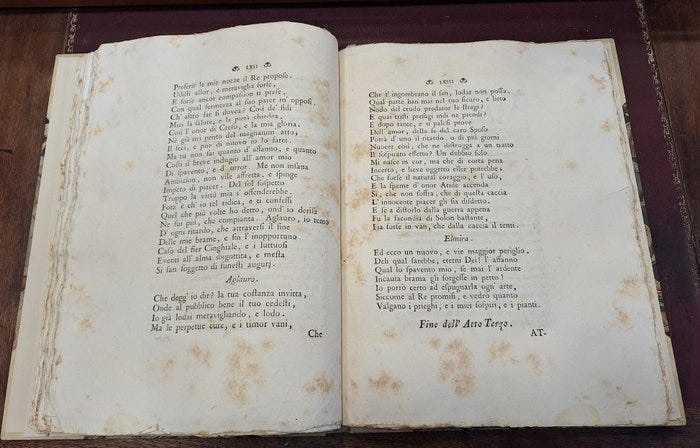 LXII
Preferir le mie nozze il Re propose.
Udisti allor, e meraviglia forse,
E forse ancor compassion ti prese,
Con qual fermezza al suo parer m'opposi.
Ch'altro far si dovea? Così de' fidi
Miei la salute, e la pietà chiedea,
Così l'onor di Creso, e la mia gloria.
Nè già mi pento del magnanim' atto,
Il feci, e pur di nuovo io lo farei.
Ma tu non sai quanto d'affanno, e quanto
Costi il breve indugio all' amor mio
Di spavento, e d'orror. Me non insana
Ambizion, non vile affretta, e spinge
Impeto di piacer. Del sol sospetto
Troppo la virtù mia s'offenderebbe.
Forz' è ch'io tel ridica, e ti confessi
Quel che più volte ho detto, ond' io derisa
Ne fui più, che compianta. Aglauro, io temo
D'ogni ritardo, che attraversi il fine
Delle mie brame, e sin l'inopportuno
Caso del fier Cinghiale, e i luttuosi
Eventi all' alma sbigottita, e mesta
Si fan soggetto di funesti augurj.
Aglauro.
Che degg' io dir? la tua costanza invitta,
Onde al pubblico bene il tuo cedesti,
Io già lodai meravigliando, e lodo.
Ma le perpetue cure, e i timor vani,
Che
LXIII
Che t'ingombrano il sen, lodar non posso.
Qual parte han mai nel tuo sicuro, e lieto
Nodo del crudo predator le stragi?
E quai tristi presagi indi ne prendi?
E dopo tante, e sì palesi prove
Dell' amor, della fe del caro Sposo
Potrà d'uno il ritardo, o di più giorni
Nuocer così, che ne distrugga a un tratto
Il sospirato effetto? Un dubbio solo
Mi nasce in cor, ma che di corta pena
Incerto, e lieve oggetto esser potrebbe,
Che forse il natural coraggio, e l'uso,
E la speme d'onor Atide accenda
Sì, che non soffra, che di questa caccia
L'innocente piacer gli sia disdetto,
E se a distorlo dalla guerra appena
Fu la facondia di Solon bastante,
Fia forse in van, che dalla caccia il tenti.
Elmira.
Ed ecco un nuovo, e vie maggior periglio.
Deh qual sarebbe, eterni Dei! l'affanno
Qual lo spavento mio, se mai l'ardente
Incauta brama gli sorgesse in petto!
Io porrò certo ad espugnarla ogn'arte,
Siccome al Re promisi, e vedrò quanto
Valgano i prieghi, e i miei sospiri, e i pianti.
Fine dell' Atto Terzo.
AT.